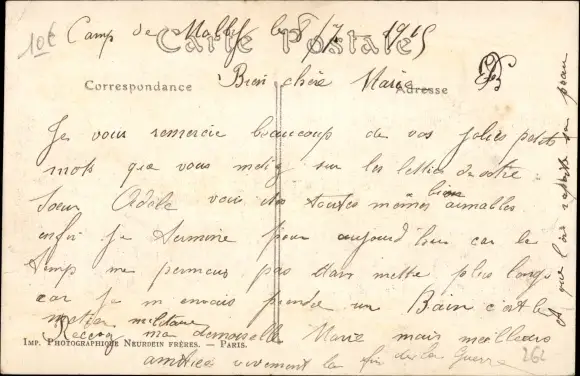 10€ Camp de Mailly le 8/7 1915
Carte Postale
Correspondance Adresse
Bien chère Marie
Je vous remercie beaucoup de vos jolies petits
mots que vous metiez sur les lettres de votre
Soeur Adèle vous êtes toutes mêmes bien aimables
enfin je termine pour aujourd'hui car le
temp me permeus pas d'en mettre plus long
car je m envais prendre un Bain c'est le
metier militaire
Recevez ma demoiselle Marie mais meilleurs
amitiés vivement la fin de la Guerre
IMP. PHOTOGRAPHIQUE NEURDEIN FRÈRES. — PARIS.
262
et que l'on